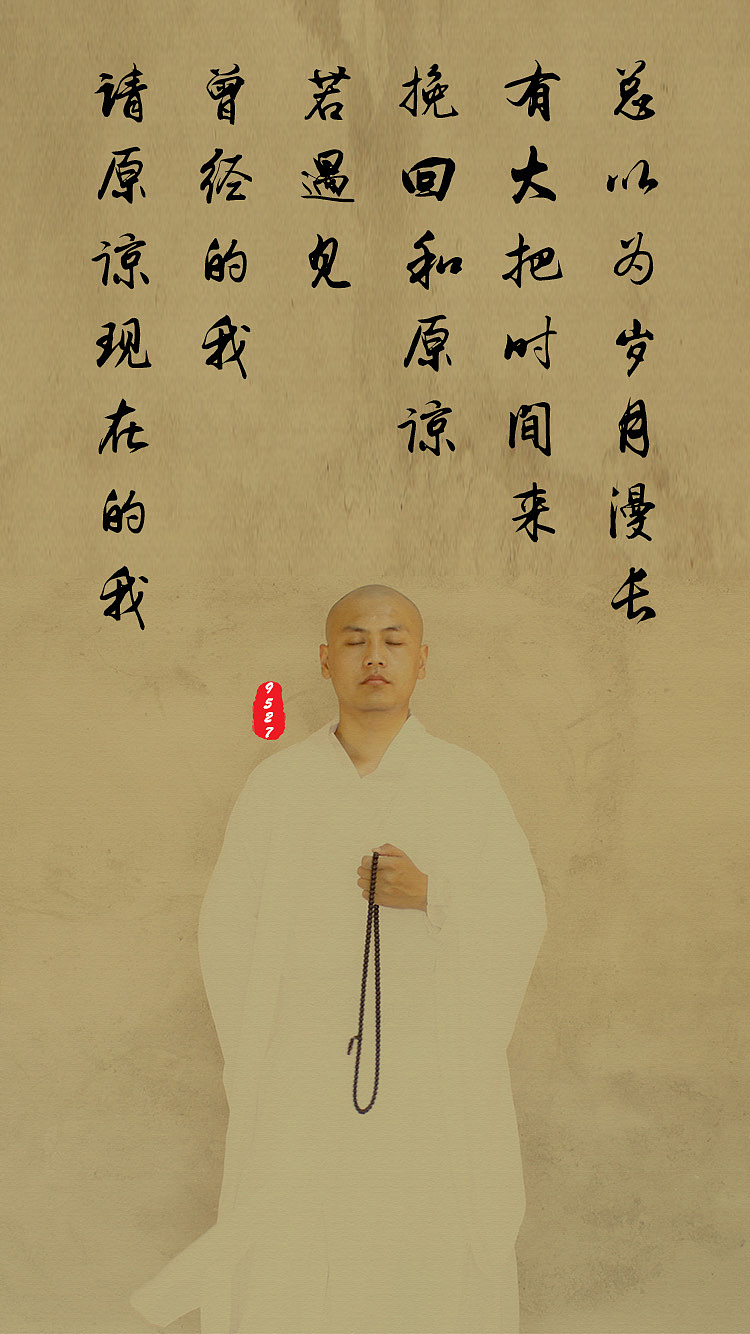 总以为岁月漫长
有大把时间来
挽回和原谅
若遇见
曾经的我
请原谅现在的我
9527